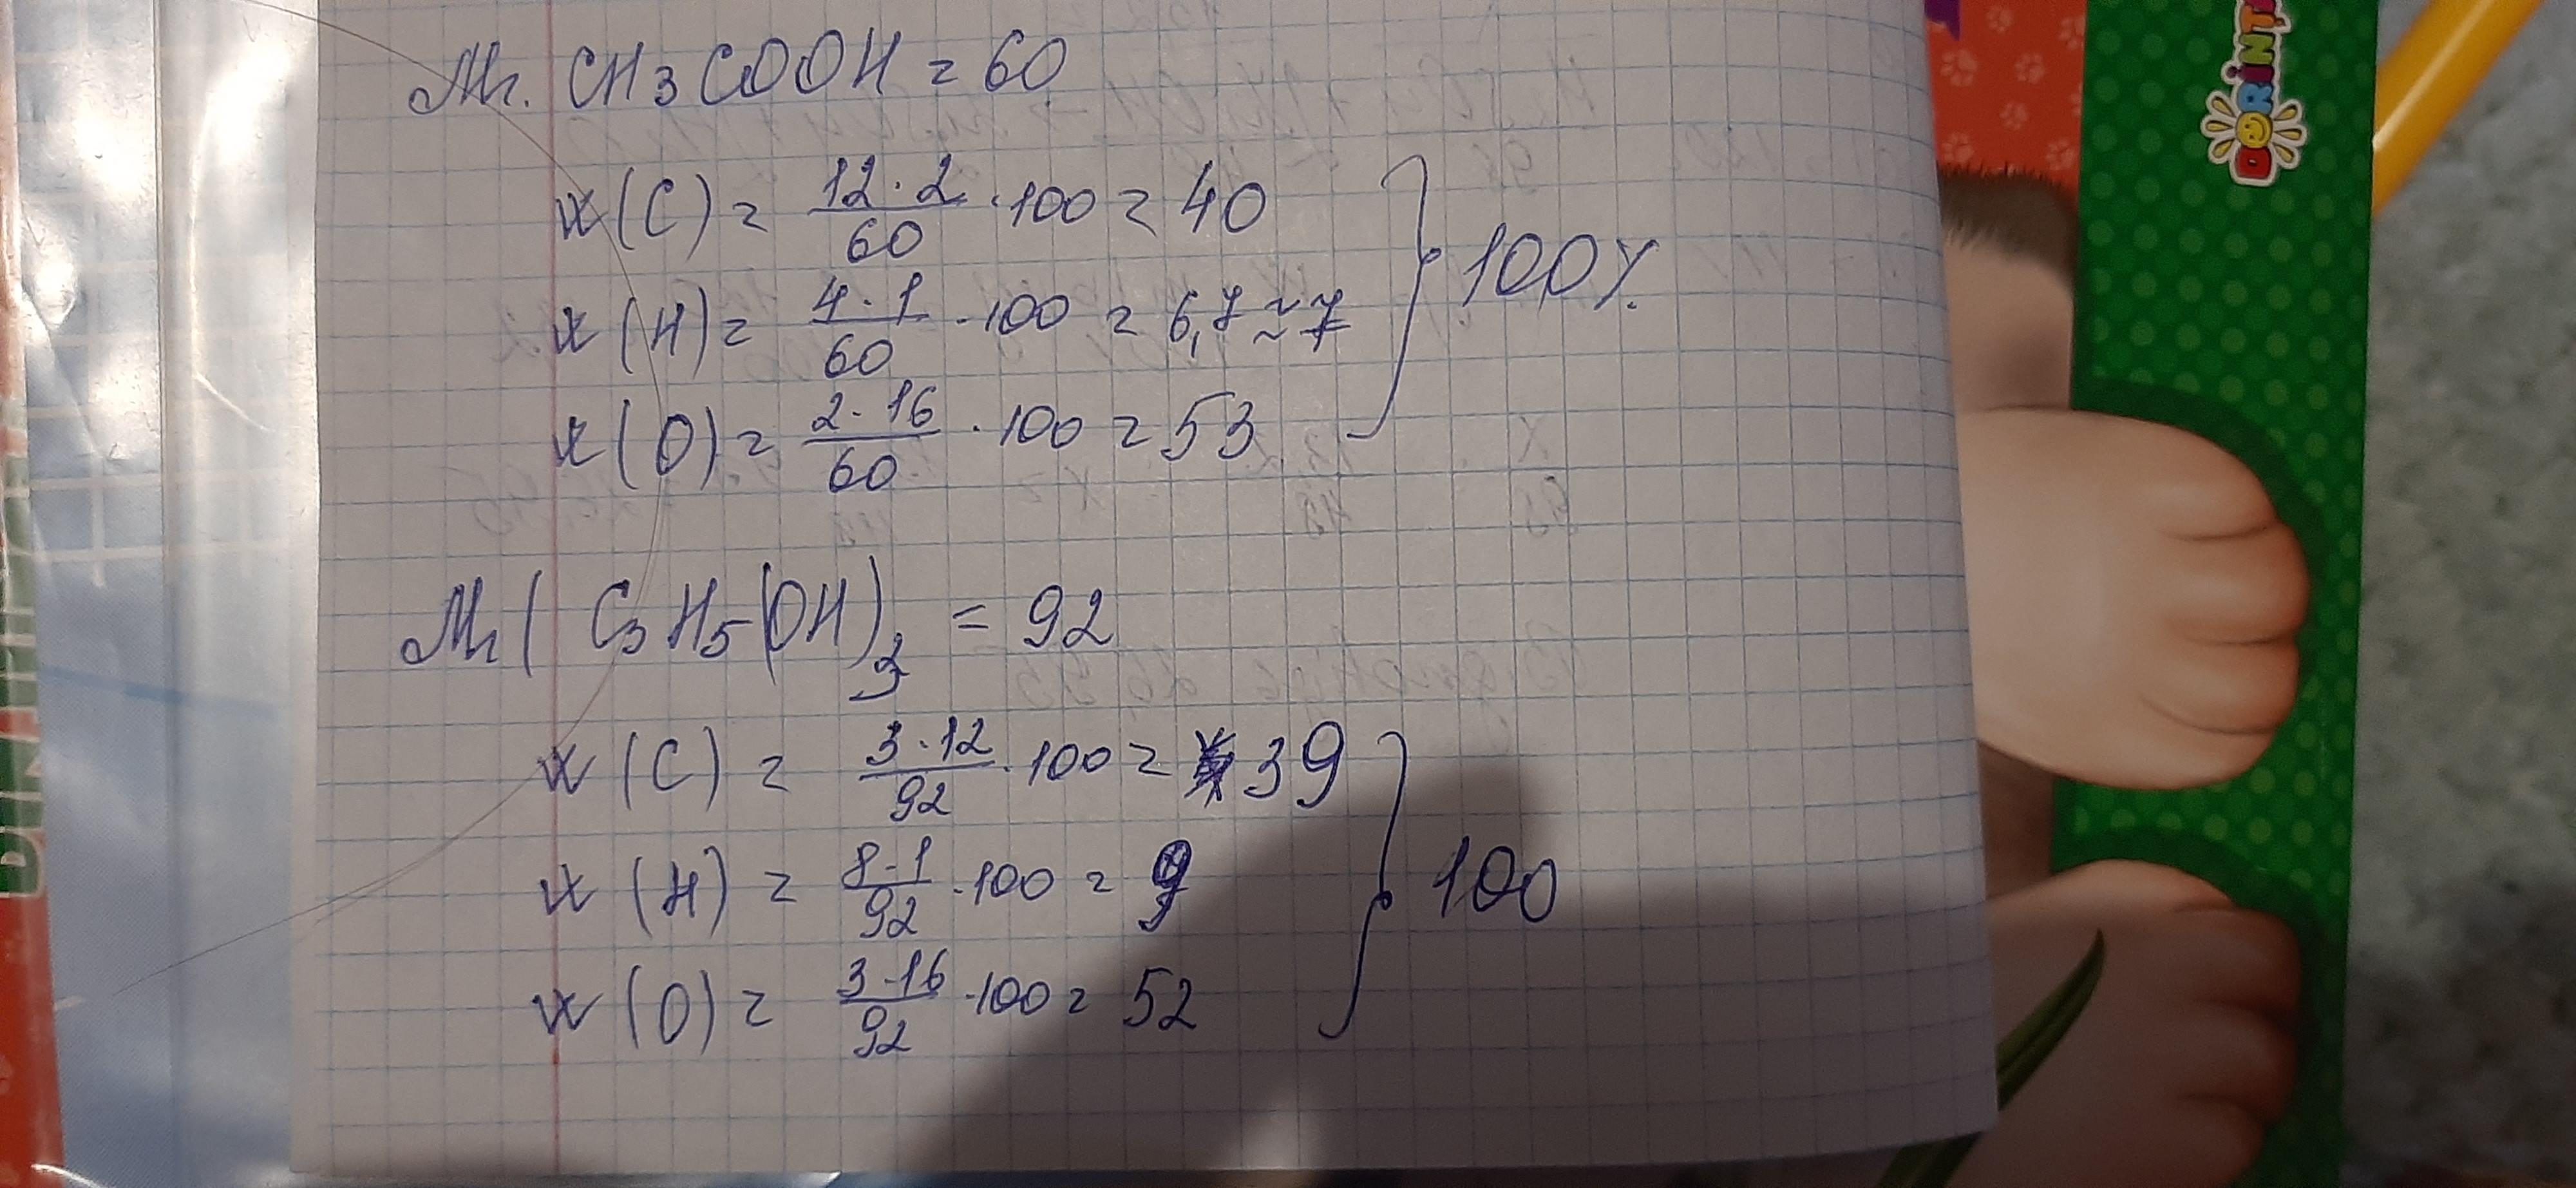 Mr. CH3COOH = 60
w(C) = 12·2/60 ·100 = 40
w(H) = 4·1/60 ·100 = 6,7 ≈ 7
w(O) = 2·16/60 ·100 = 53
100%
Mr(C3H5(OH)3 = 92
w(C) = 3·12/92 ·100 = 39
w(H) = 8·1/92 ·100 = 9
w(O) = 3·16/92 ·100 = 52
100